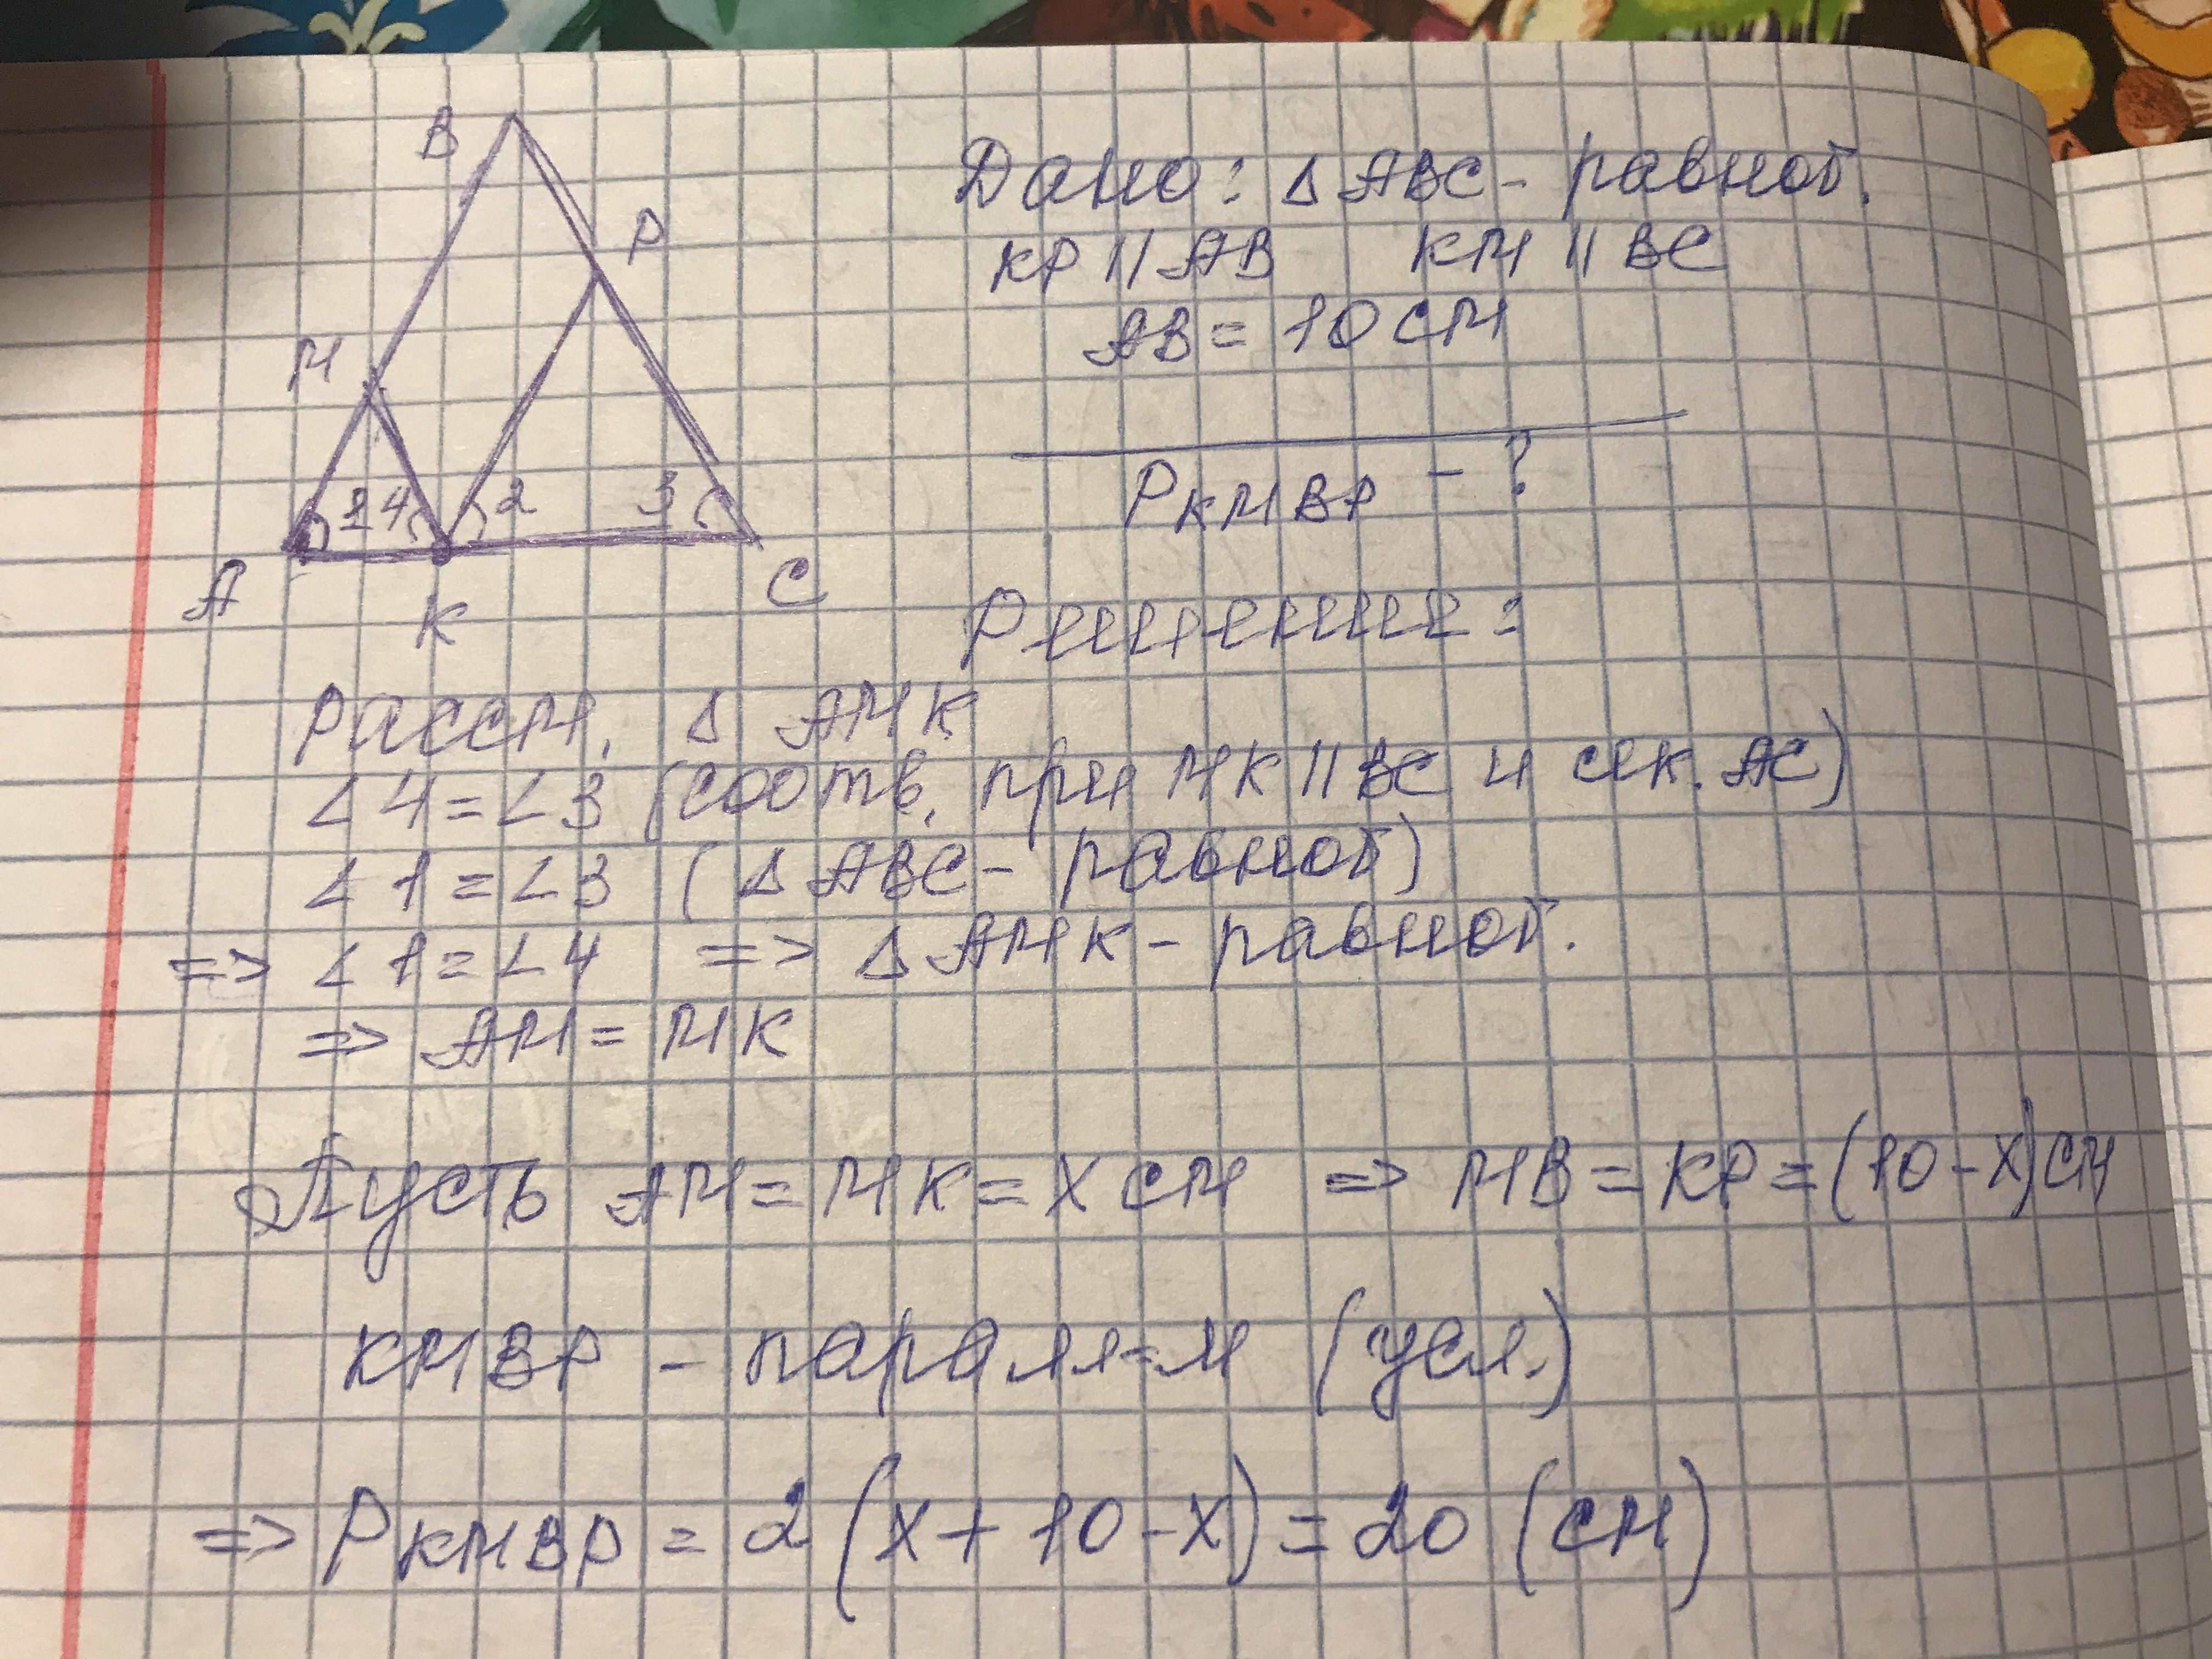 B
P
M
1 4 2 3
A
K
C
Дано: Δ ABC - равноб.
KP || AB KM || BC
AB = 10 см
P KMBP - ?
Решение:
Рассм. Δ AMK
∠4 = ∠3 (соотв. при MK || BC и сек. AC)
∠1 = ∠3 (Δ ABC - равноб)
=> ∠1 = ∠4 => Δ AMK - равноб.
=> AM = MK
Пусть AM = MK = x см => MB = KP = (10 - x) см
KMBP - паралл-м (усл.)
=> P KMBP = 2 (x + 10 - x) = 20 (см)